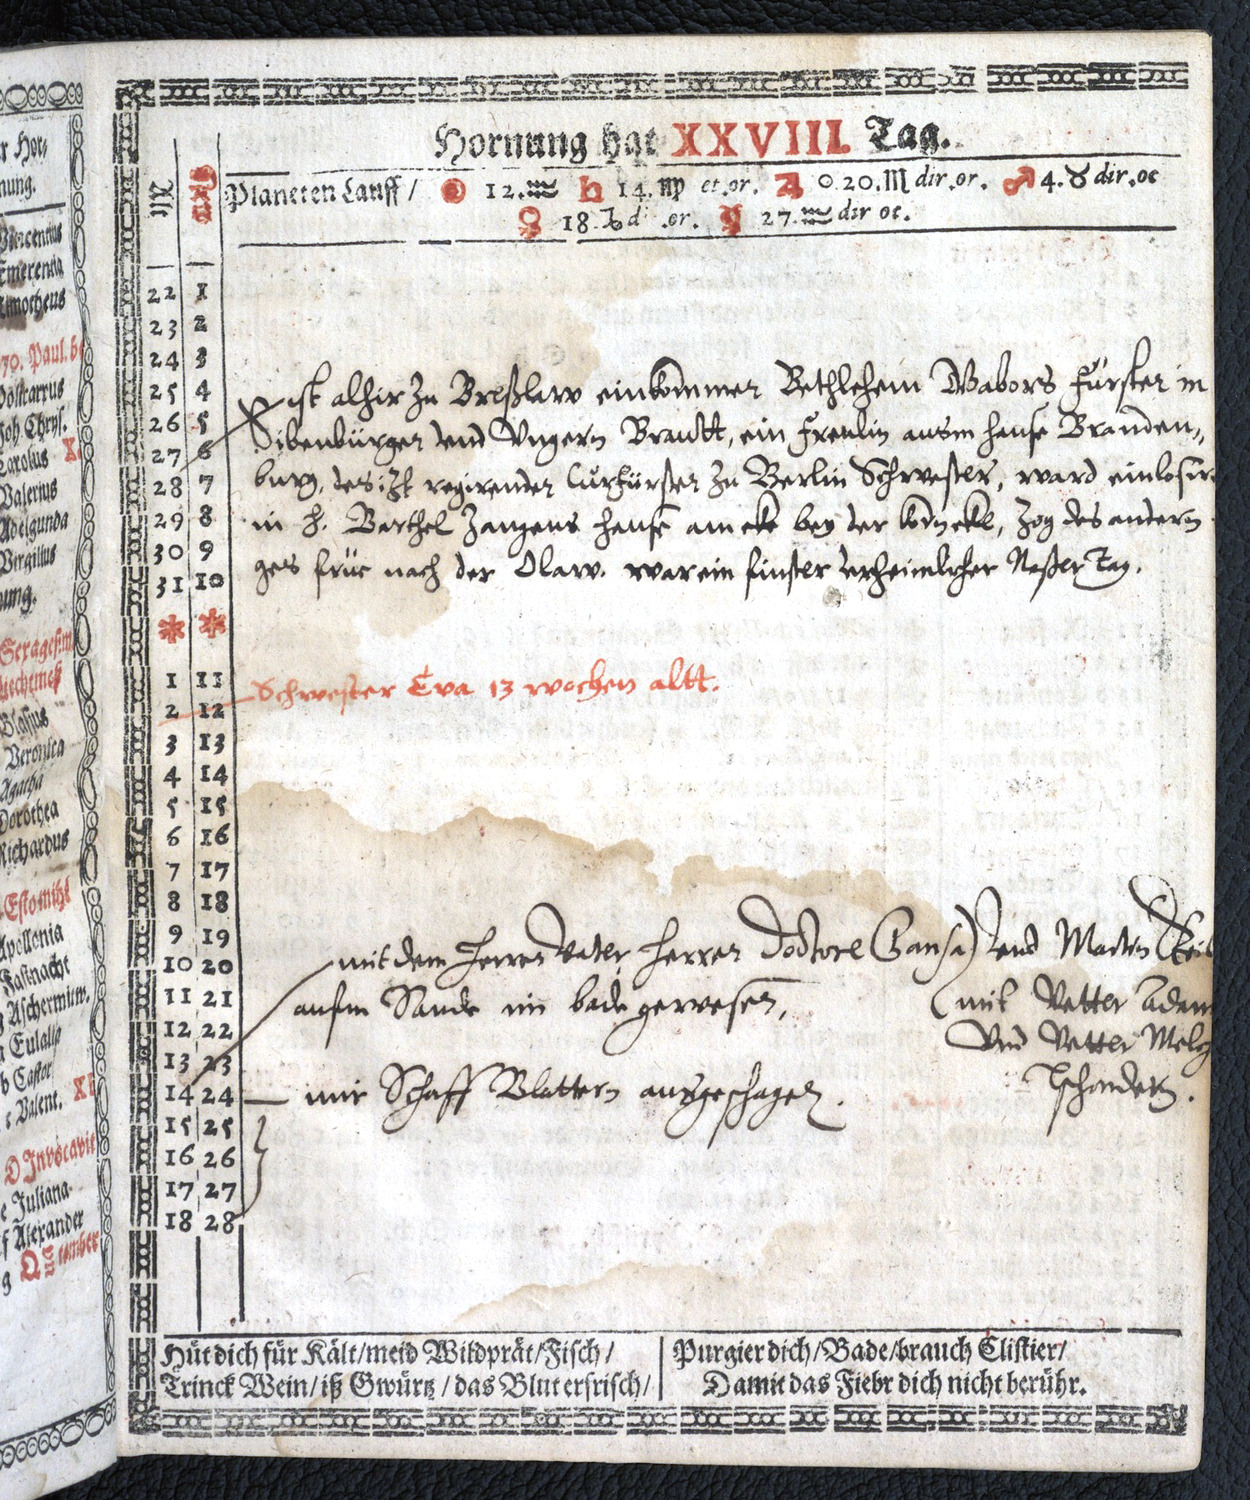 Hornung hat XXVIII. Tag.
Planeten Lauff / ☉ 12.♒ ♄ 14.♍ et.or. ♃ 0.20.♏ dir.or. ♂ 4.♉ dir.oc
♀ 18.♑ di .or. ☿ 27.♒ dir oc.
22 1
23 2
24 3
25 4
26 5
27 6
28 7
29 8
30 9
31 10
ist alhir zu Breßlaw einkommen Bethlehem Gabors Fürsten in
Sibenbürgen vnd Vngern Brautt, ein Freulin ausm hause Branden„
burg, des itzt regirenden Curfürsten zu Berlin Schwester, ward einlosir
in h. Barthel hause am eke bey der zog des andern
ges früe nach der Olaw. war ein finster Naßer Tag.
* *
1 11
2 12
3 13
4 14
5 15
6 16
7 17
8 18
9 19
10 20
11 21
12 22
13 23
14 24
15 25
16 26
17 27
18 28
Schwester Eva 13 wochen altt.
mit dem herren Vater, herren Doctore vnd Martin
aufm Sande im bade gewesen,
(mit Vetter Adam
Vnd Vetter Melch
Tschandern.
mir Schaff Blattern außgeschagen.
Hüt dich für Kält/meid Wildprät/Fisch/
Trinck Wein/iß Gwürtz/das Blut erfrisch/
Purgier dich/Bade/brauch Clistier/
Damit das Fiebr dich nicht berühr.
r Hor/
nung.
Vincentius
Emerentia
Timotheus
70. Paul. be
Policarpus
Joh Chrys.
Carolus
Valerius
Adelgunda
Virgilius
Sexagesim
Liechtmeß
Blasius
Veronica
Agatha
Dorothea
Richardus
Estomihi
Apollonia
Fastnacht
Aschermitw.
Eulalia
Castor
Valent.
XI
O Invocavit
Juliana
Alexander
Quatember